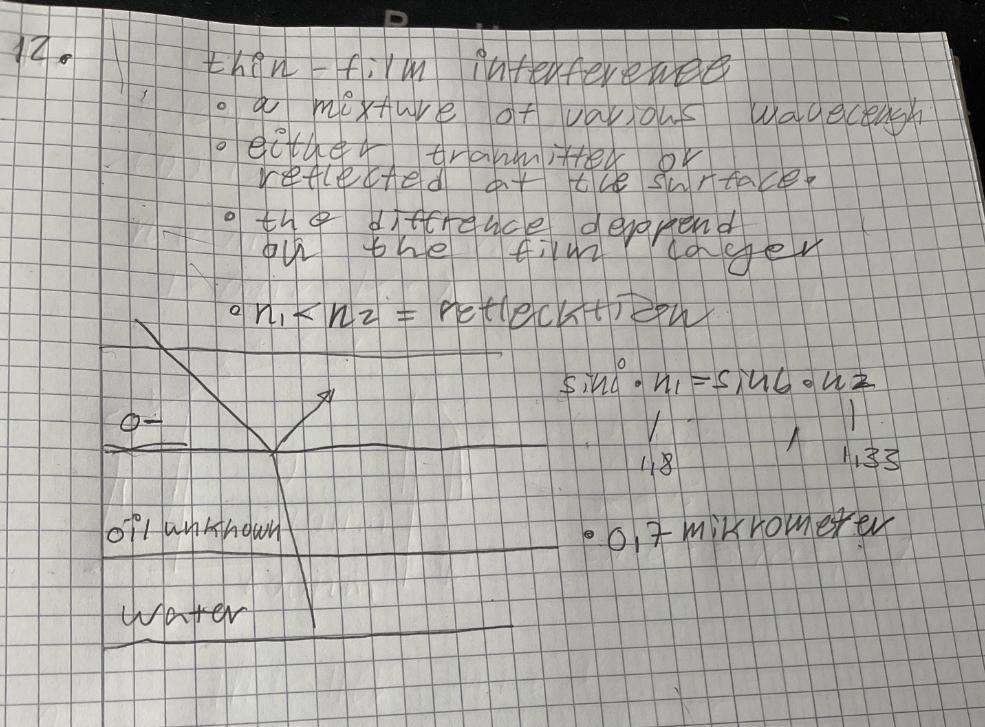 12.
thin-film interference
• a mixture of various wavecengh
• either tranmitter or
reflected at the surface.
• the diffrence deppend
on the film layer
• n1 < n2 = refleckt
sini • n1 = sinb • n2
1,8 1,33
oil unknown
• 0,7 mikrometer
water